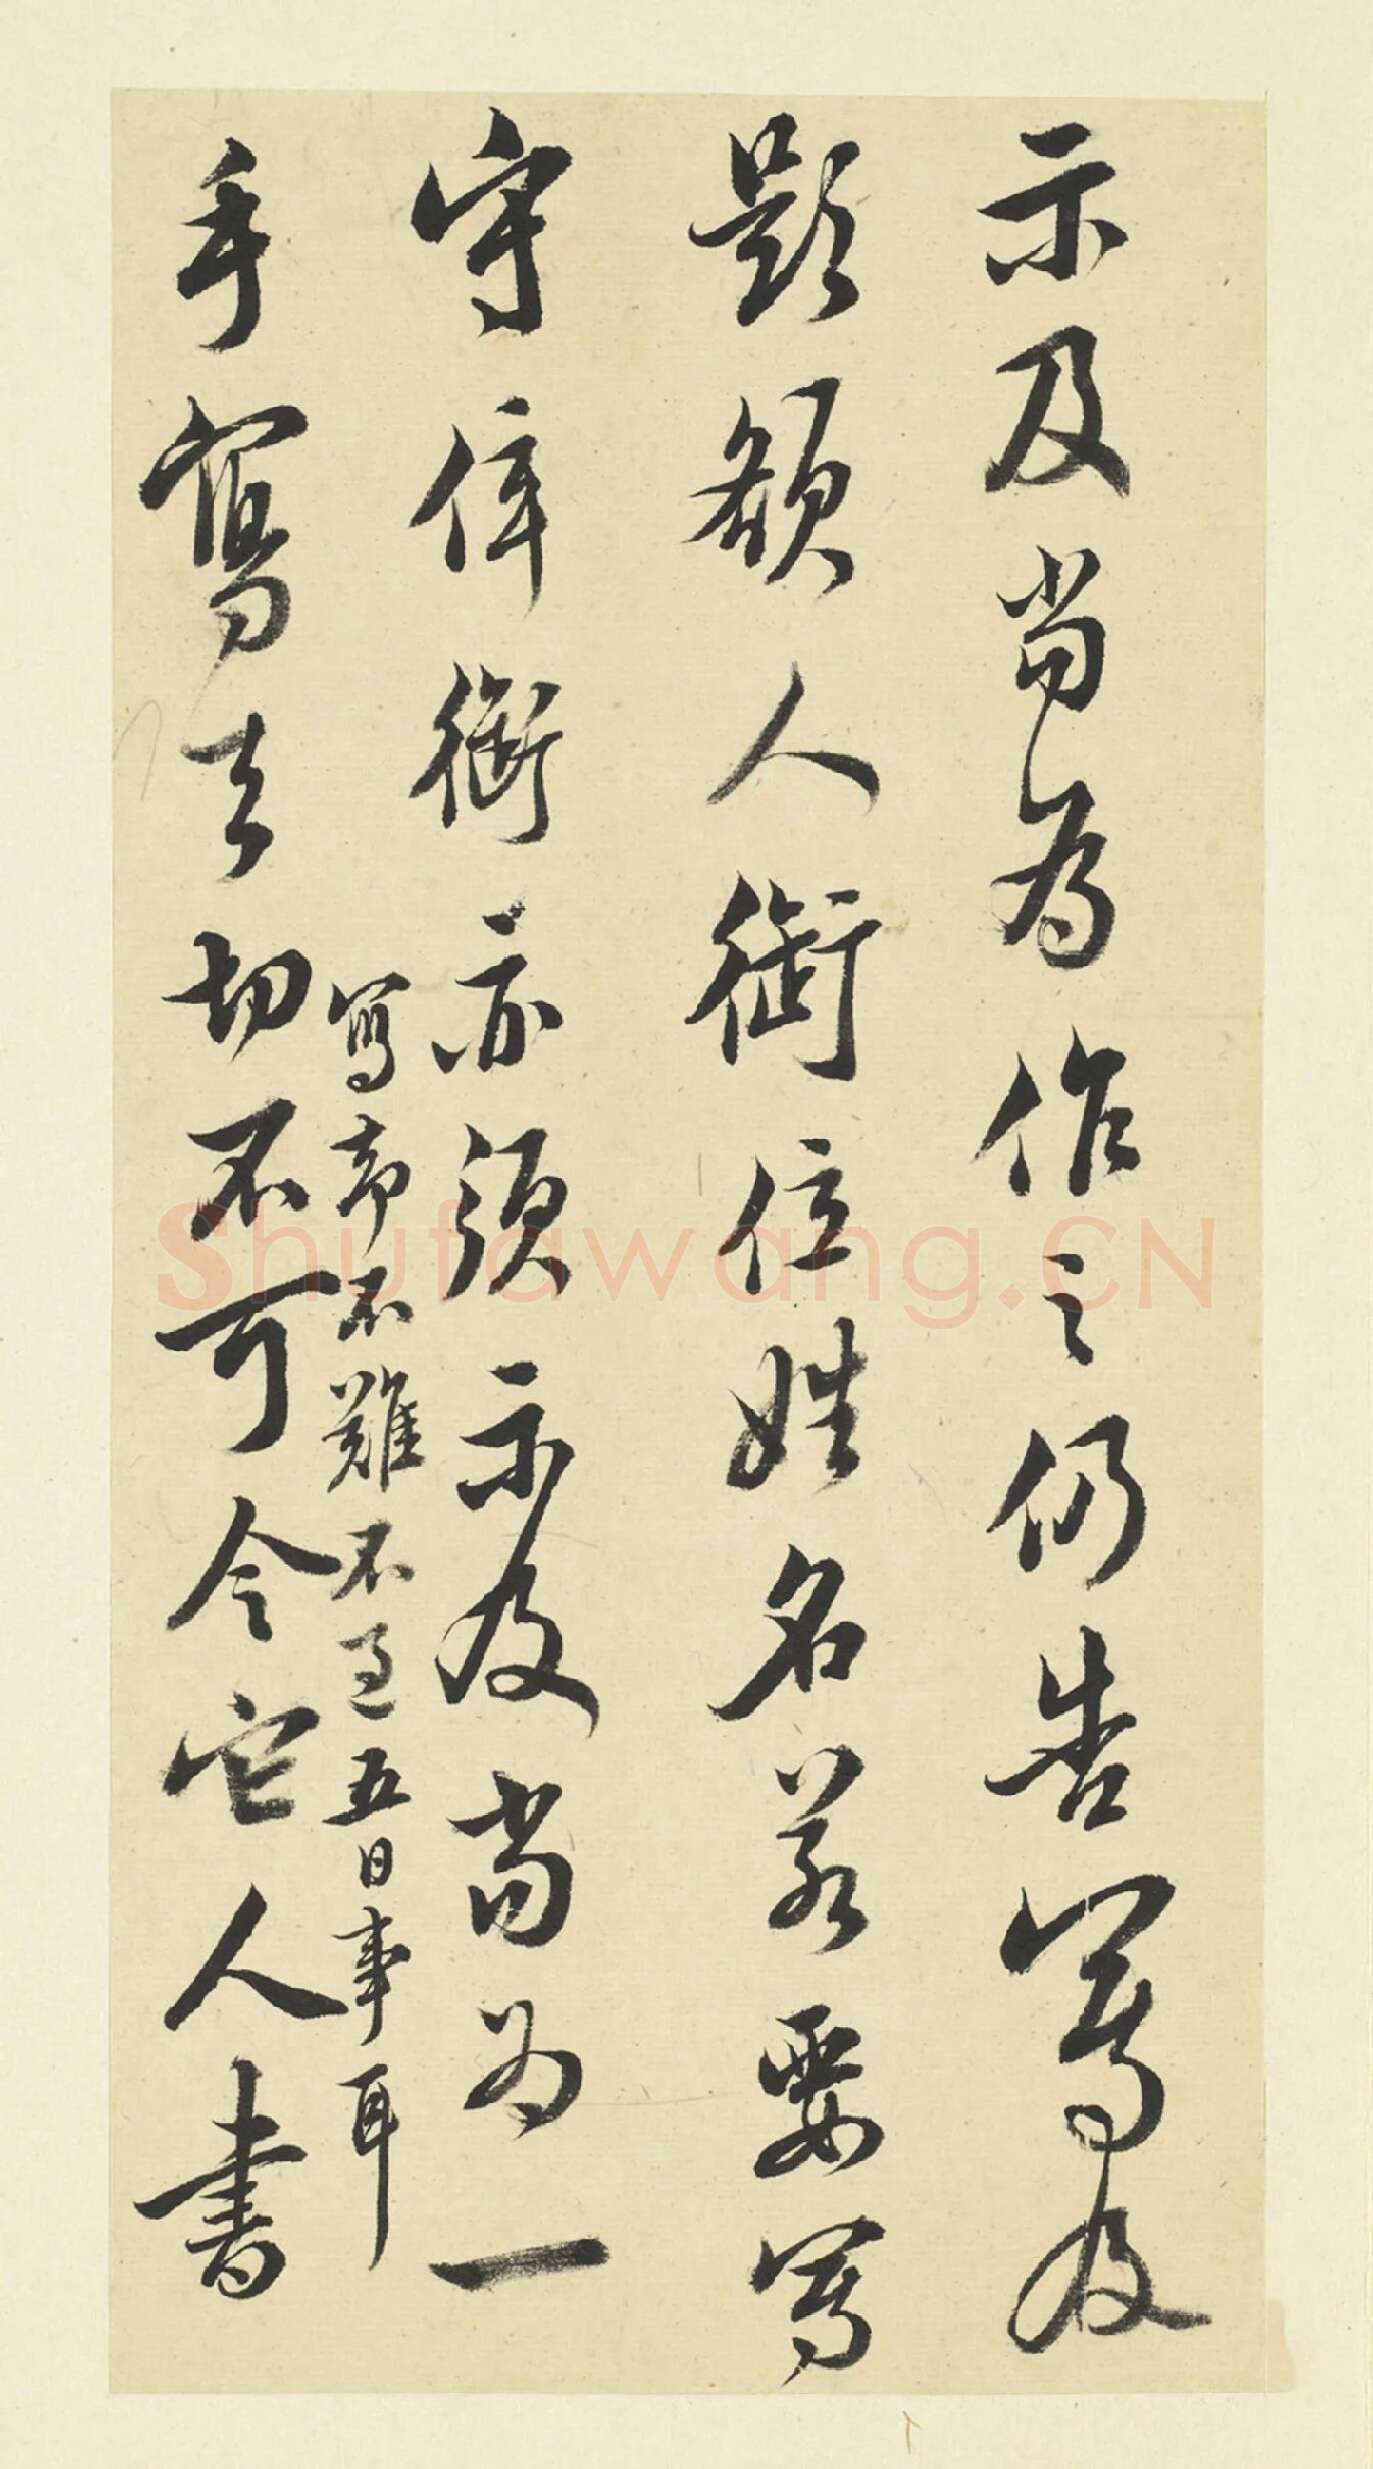 示及當為作之仍告寫及
題額人銜位姓名若要寫
守倅銜亦須示及當為一
手寫去切不可令它人書
寫亦不難不過五日事耳
Shufawang.CN